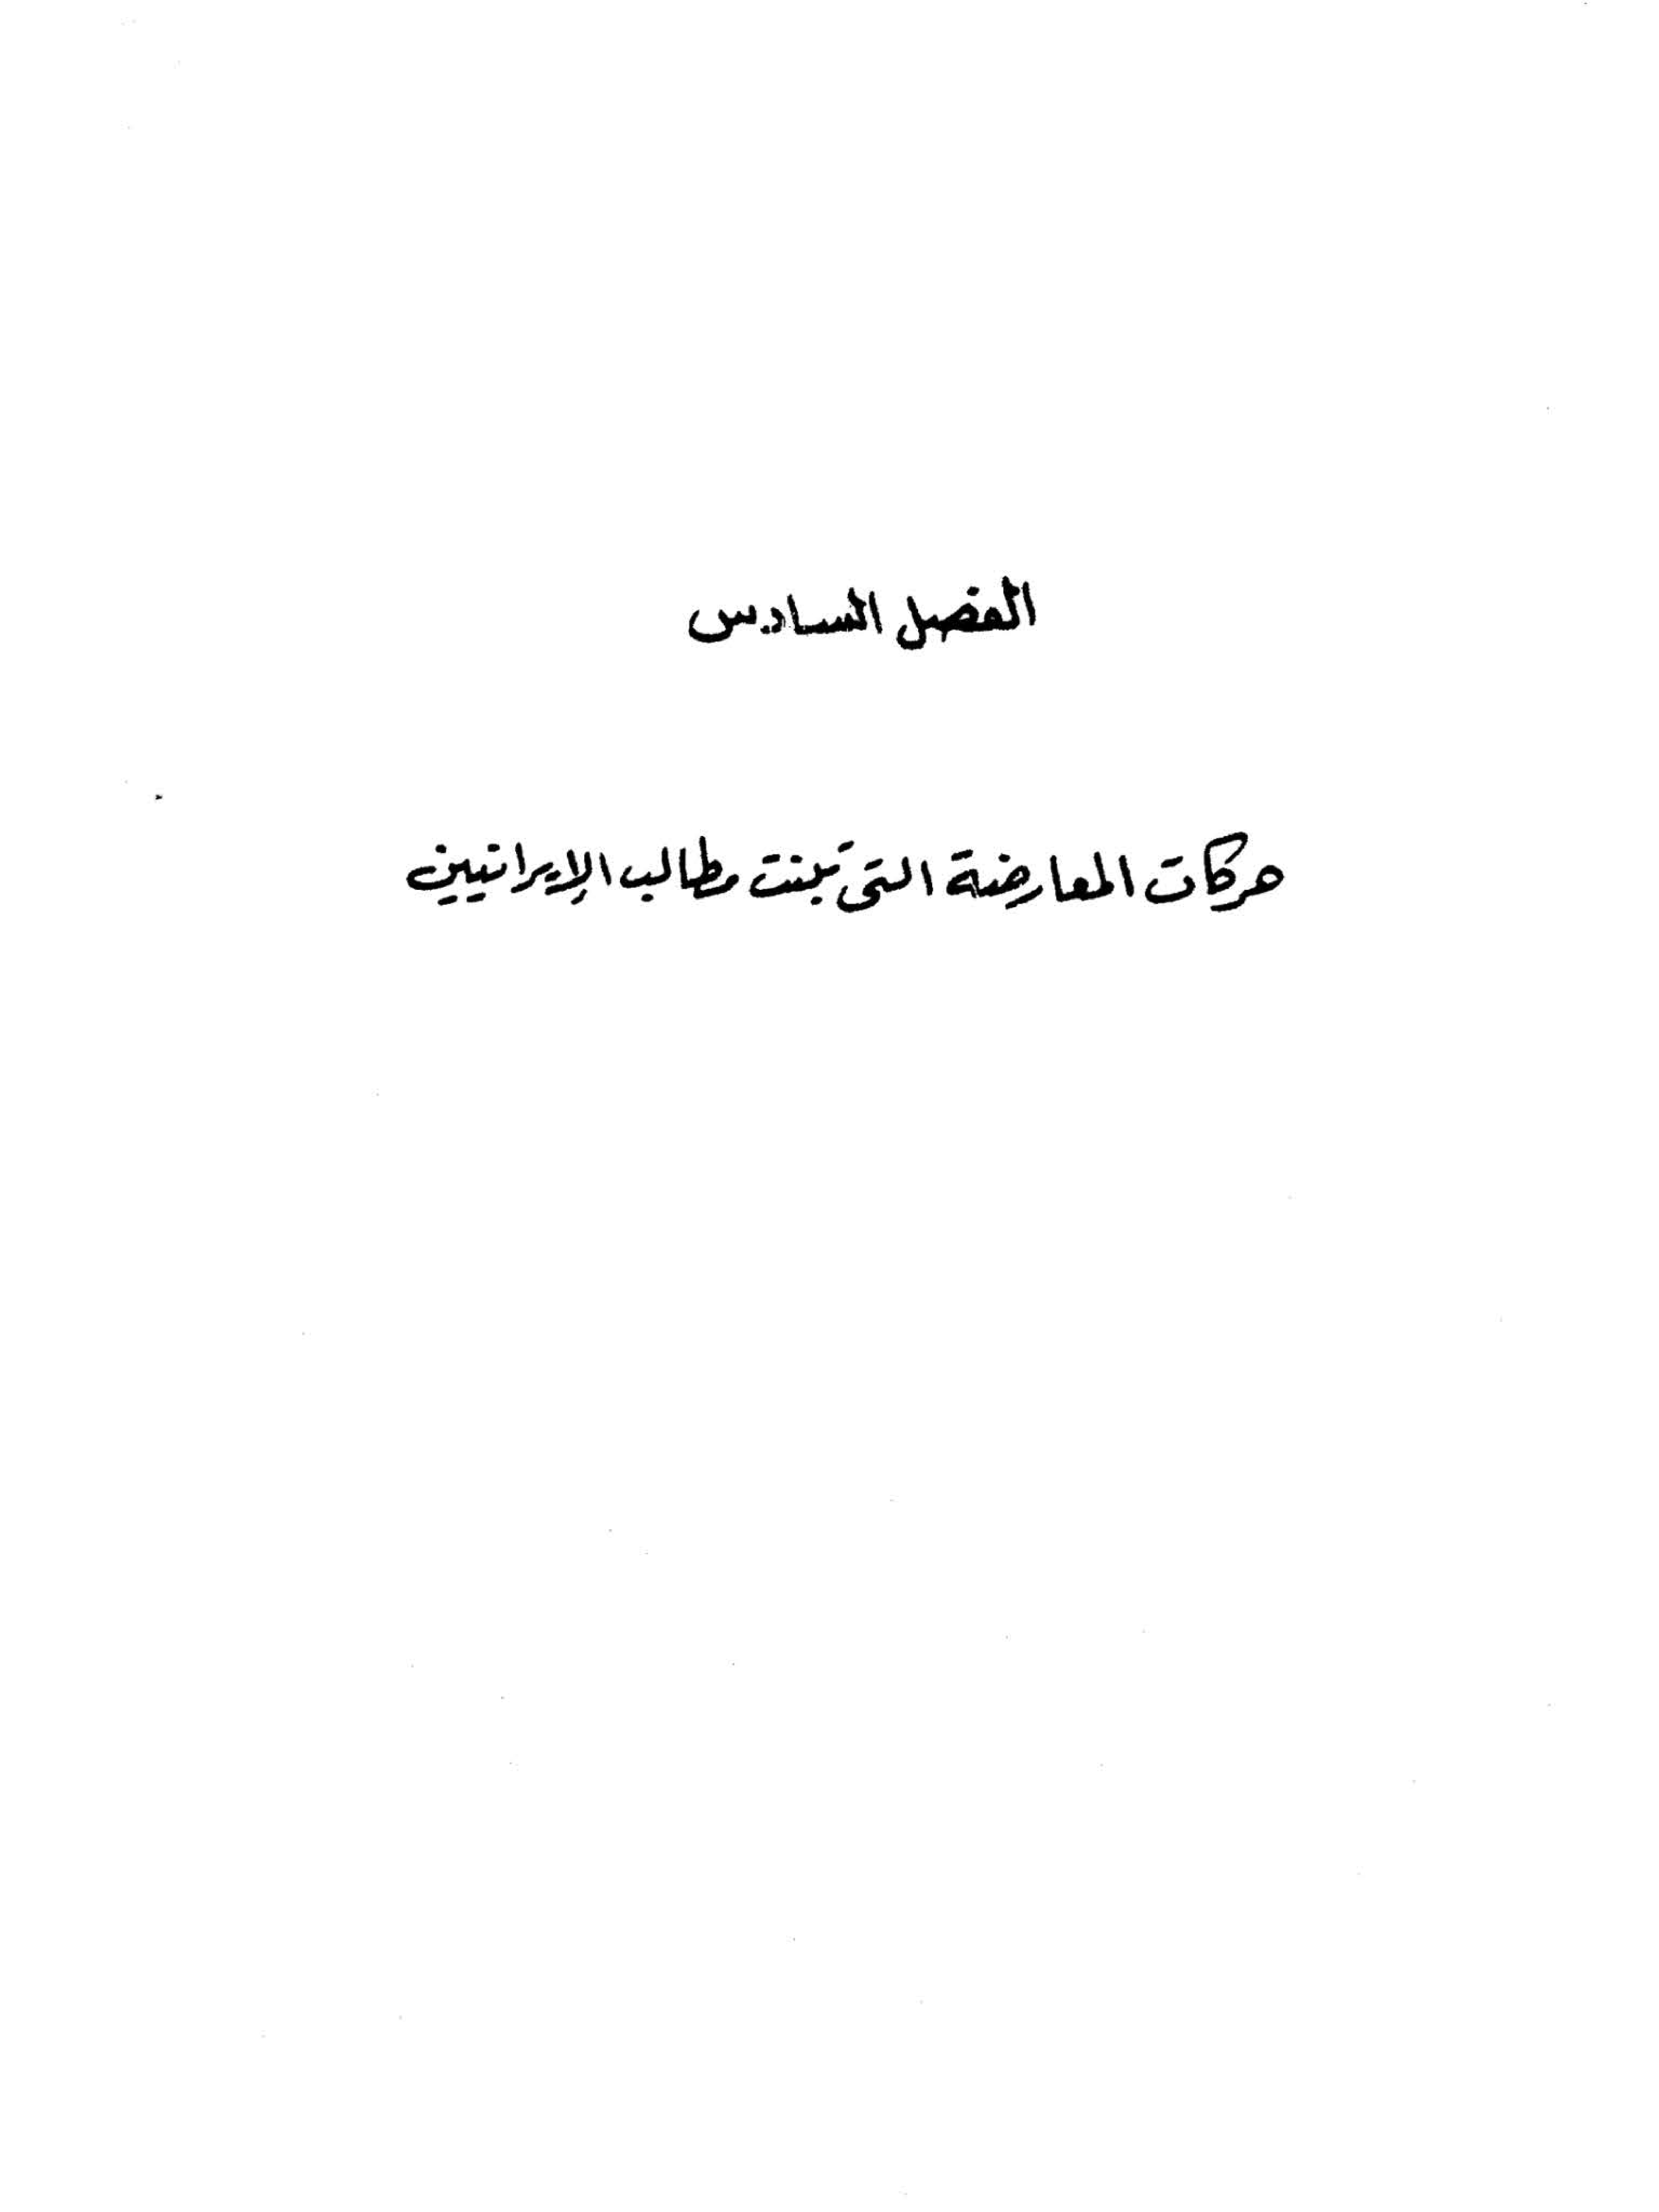 الفصل السادس
حركات المعارضة التى تبنت مطالب الإيرانيين